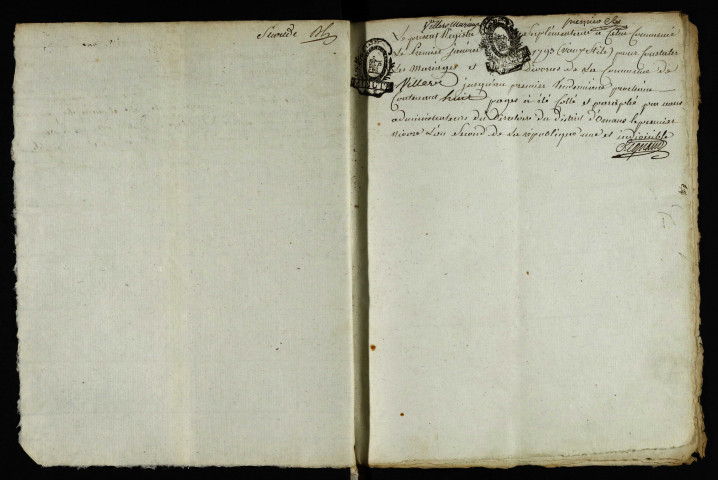 Seconde
Villers Mariage premier
Le present Registre Supplementaire a Celui Commencé
Le Premier janvier 1793 (vieux stile) pour Constater
Les Mariages et Divorces de La Commune de
Villers jusqu'au premier Vendemiaire prochain
Contenant huit pages à été Cotté et paraphé par nous
administrateurs du Directoire du district d'Ornans le premier
nivose L'an Second de La république une et indivisible
Regnaud